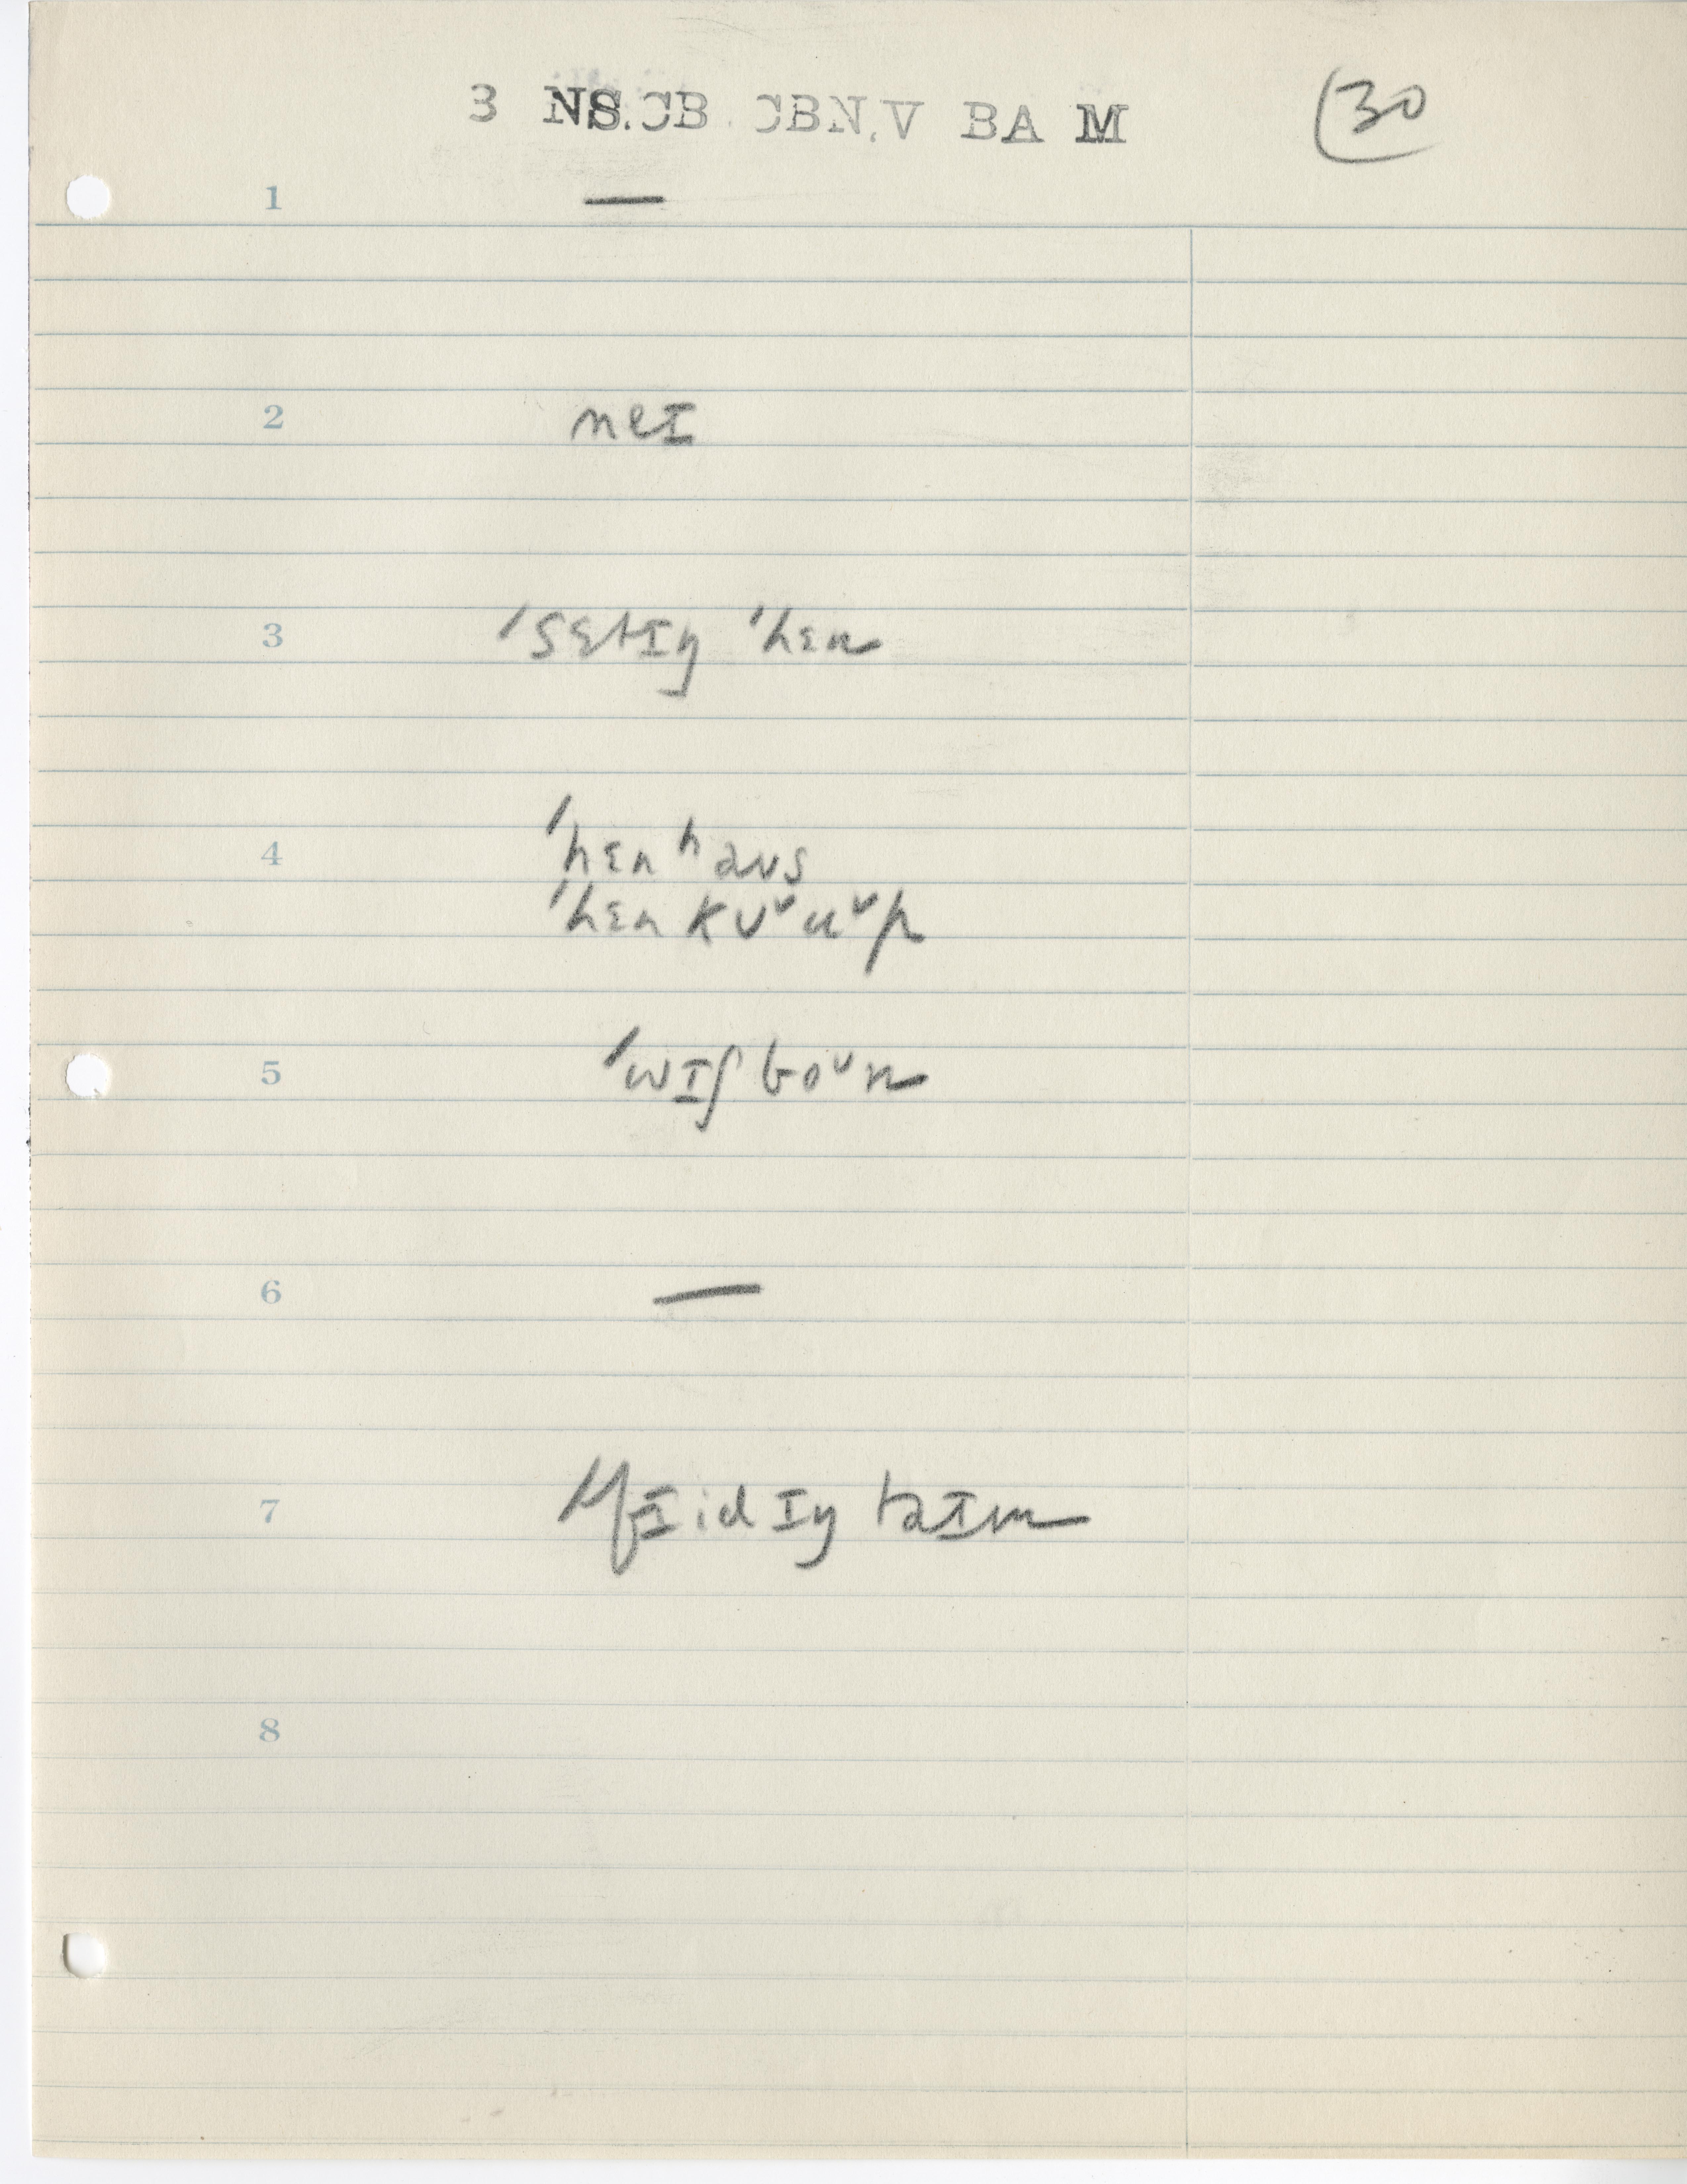 3 NS.CB CBN.V BA M
30
1 —
2 neɪ
3 ˈsɛtɪŋ ˈhɛn
4 ˈhɛn haʊs
ˈhɛn kuᵘuᵘp
5 ˈwɪʃ boᵘn
6 —
7 ˈfɪidɪŋ taɪm
8